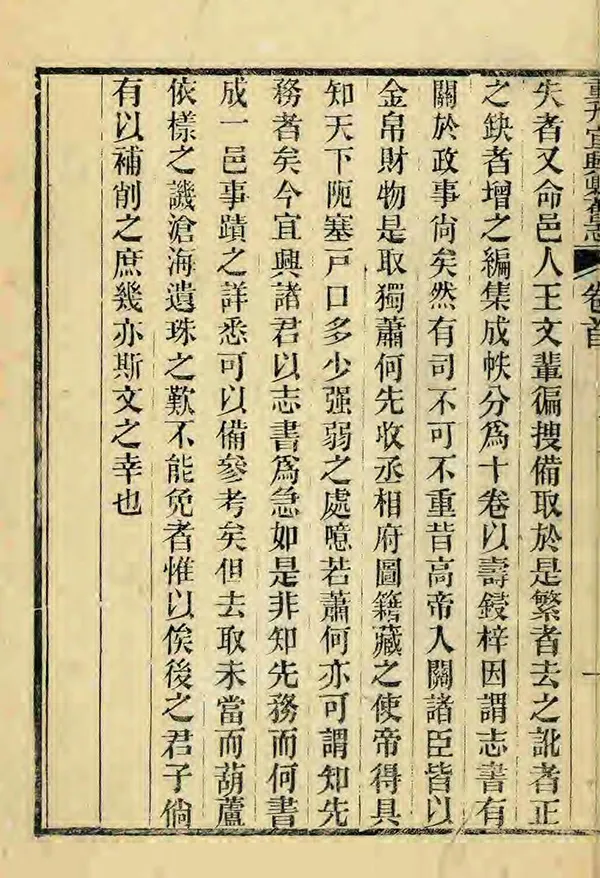 重刋宜興縣舊志 卷首 一
失者又命邑人王文輩徧搜備取於是繁者去之訛者正
之缺者增之編集成帙分爲十卷以壽鋟梓因謂志書有
關於政事尙矣然有司不可不重昔高帝人關諸臣皆以
金帛財物是取獨蕭何先收丞相府圖籍藏之使帝得具
知天下阨塞戸口多少强弱之處噫若蕭何亦可謂知先
務者矣今宜興諸君以志書爲急如是非知先務而何書
成一邑事蹟之詳悉可以備參考矣但去取未當而葫蘆
依樣之譏滄海遺珠之歎不能免者惟以俟後之君子倘
有以補削之庶幾亦斯文之幸也